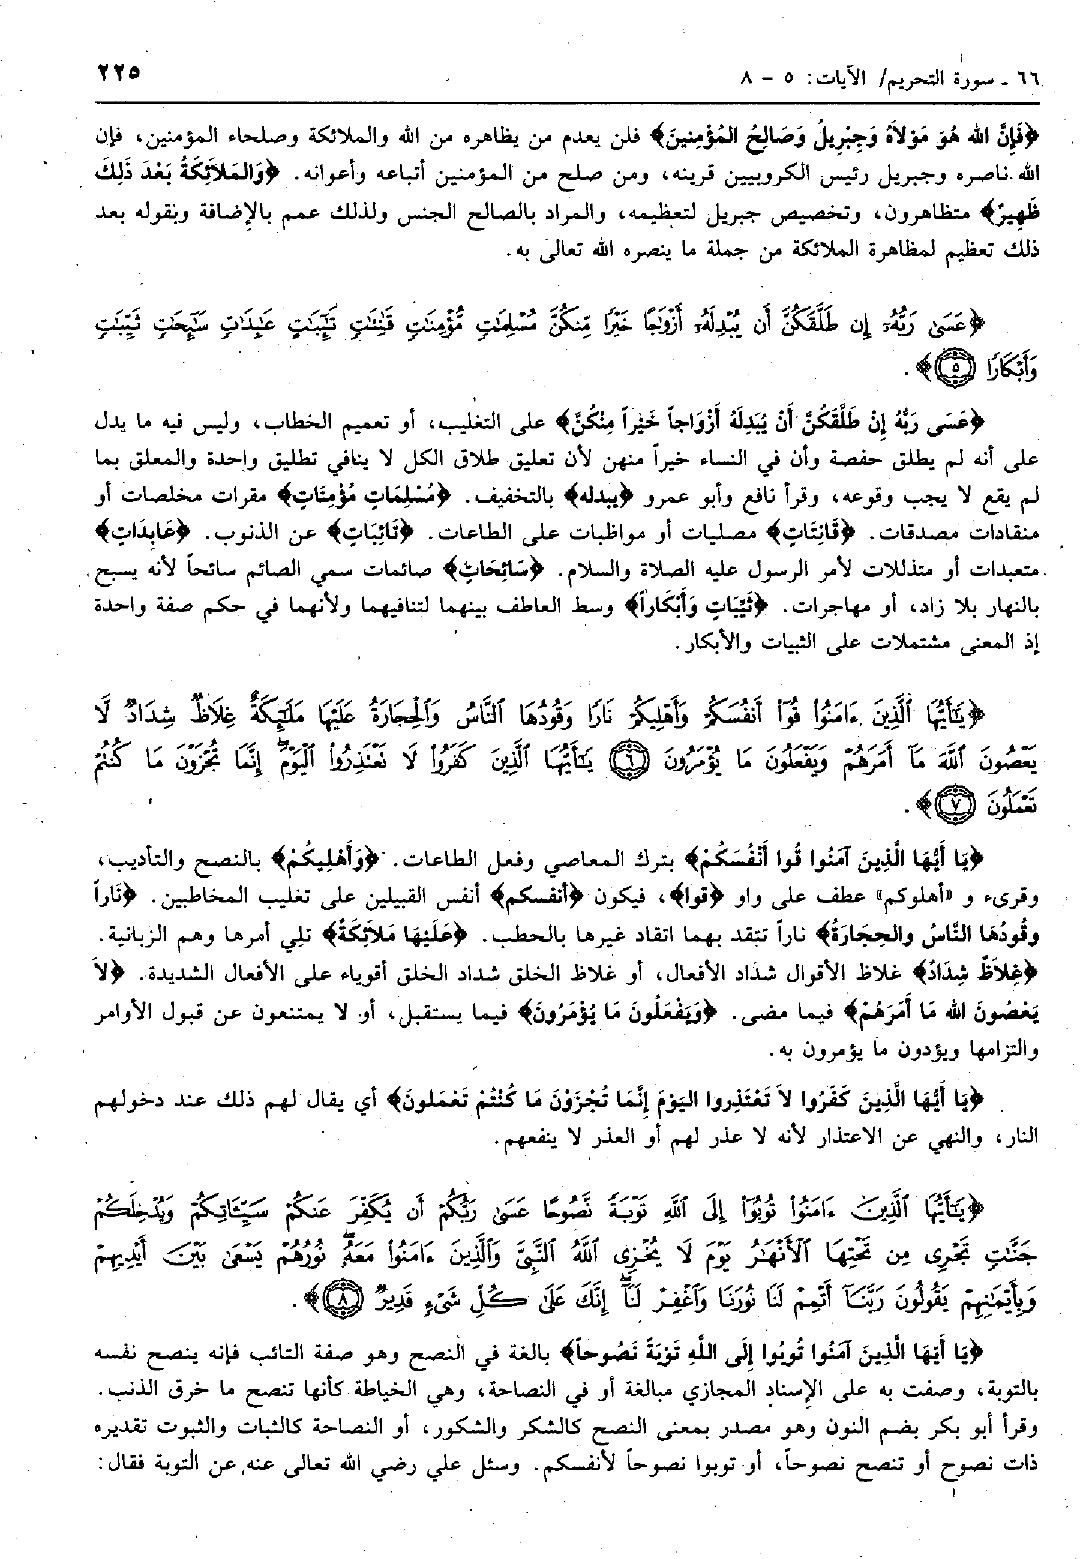 ٦٦ ـ سورة التحريم/ الآيات: ٥ - ٨
٢٢٥
﴿فَإِنَّ الله هُوَ مَوْلاَهُ وَجِبْرِيلُ وَصَالِحُ المُؤْمِنِينَ﴾ فلن يعدم من يظاهره من الله والملائكة وصلحاء المؤمنين، فإن
الله ناصره وجبريل رئيس الكروبيين قرينه، ومن صلح من المؤمنين أتباعه وأعوانه. ﴿وَالمَلاَئِكَةُ بَعْدَ ذَلِكَ
ظَهِيرٌ﴾ متظاهرون، وتخصيص جبريل لتعظيمه، والمراد بالصالح الجنس ولذلك عمم بالإضافة وبقوله بعد
ذلك تعظيم لمظاهرة الملائكة من جملة ما ينصره الله تعالى به.
﴿عَسَىٰ رَبُّهُۥٓ إِن طَلَّقَكُنَّ أَن يُبْدِلَهُۥٓ أَزْوَٰجًا خَيْرًا مِّنكُنَّ مُسْلِمَٰتٍ مُّؤْمِنَٰتٍ قَٰنِتَٰتٍ تَٰٓئِبَٰتٍ عَٰبِدَٰتٍ سَٰٓئِحَٰتٍ ثَيِّبَٰتٍ
وَأَبْكَارًا ٥﴾.
﴿عَسَى رَبُّهُ إِنْ طَلَّقَكُنَّ أَنْ يُبْدِلَهُ أَزْوَاجاً خَيْراً مِنْكُنَّ﴾ على التغليب، أو تعميم الخطاب، وليس فيه ما يدل
على أنه لم يطلق حفصة وأن في النساء خيراً منهن لأن تعليق طلاق الكل لا ينافي تطليق واحدة والمعلق بما
لم يقع لا يجب وقوعه، وقرأ نافع وأبو عمرو ﴿يبدله﴾ بالتخفيف. ﴿مُسْلِمَاتٍ مُؤْمِنَاتٍ﴾ مقرات مخلصات أو
منقادات مصدقات. ﴿قَانِتَاتٍ﴾ مصليات أو مواظبات على الطاعات. ﴿تَائِبَاتٍ﴾ عن الذنوب. ﴿عَابِدَاتٍ﴾
متعبدات أو متذللات لأمر الرسول عليه الصلاة والسلام. ﴿سَائِحَاتٍ﴾ صائمات سمي الصائم سائحاً لأنه يسبح
بالنهار بلا زاد، أو مهاجرات. ﴿ثَيِّبَاتٍ وَأَبْكَاراً﴾ وسط العاطف بينهما لتنافيهما ولأنهما في حكم صفة واحدة
إذ المعنى مشتملات على الثيبات والأبكار.
﴿يَٰٓأَيُّهَا ٱلَّذِينَ ءَامَنُوا۟ قُوٓا۟ أَنفُسَكُمْ وَأَهْلِيكُمْ نَارًا وَقُودُهَا ٱلنَّاسُ وَٱلْحِجَارَةُ عَلَيْهَا مَلَٰٓئِكَةٌ غِلَاظٌ شِدَادٌ لَّا
يَعْصُونَ ٱللَّهَ مَآ أَمَرَهُمْ وَيَفْعَلُونَ مَا يُؤْمَرُونَ ٦ يَٰٓأَيُّهَا ٱلَّذِينَ كَفَرُوا۟ لَا تَعْتَذِرُوا۟ ٱلْيَوْمَ ۖ إِنَّمَا تُجْزَوْنَ مَا كُنتُمْ
تَعْمَلُونَ ٧﴾.
﴿يَا أَيُّهَا الَّذِينَ آمَنُوا قُوا أَنْفُسَكُمْ﴾ بترك المعاصي وفعل الطاعات. ﴿وَأَهْلِيكُمْ﴾ بالنصح والتأديب،
وقرىء و «أهلوكم» عطف على واو ﴿قوا﴾، فيكون ﴿أنفسكم﴾ أنفس القبيلين على تغليب المخاطبين. ﴿نَاراً
وقُودُهَا النَّاسُ والحِجَارَةُ﴾ ناراً تتقد بهما اتقاد غيرها بالحطب. ﴿عَلَيْهَا مَلاَئِكَةٌ﴾ تلي أمرها وهم الزبانية.
﴿غِلاَظٌ شِدَادٌ﴾ غلاظ الأقوال شداد الأفعال، أو غلاظ الخلق شداد الخلق أقوياء على الأفعال الشديدة. ﴿لاَ
يَعْصُونَ الله مَا أَمَرَهُمْ﴾ فيما مضى. ﴿وَيَفْعَلُونَ مَا يُؤْمَرُونَ﴾ فيما يستقبل، أو لا يمتنعون عن قبول الأوامر
والتزامها ويؤدون ما يؤمرون به.
﴿يَا أَيُّهَا الَّذِينَ كَفَرُوا لاَ تَعْتَذِروا اليَوْمَ إِنَّمَا تُجْزَوْنَ مَا كُنْتُمْ تَعْمَلون﴾ أي يقال لهم ذلك عند دخولهم
النار، والنهي عن الاعتذار لأنه لا عذر لهم أو العذر لا ينفعهم.
﴿يَٰٓأَيُّهَا ٱلَّذِينَ ءَامَنُوا۟ تُوبُوٓا۟ إِلَى ٱللَّهِ تَوْبَةً نَّصُوحًا عَسَىٰ رَبُّكُمْ أَن يُكَفِّرَ عَنكُمْ سَيِّـَٔاتِكُمْ وَيُدْخِلَكُمْ
جَنَّٰتٍ تَجْرِى مِن تَحْتِهَا ٱلْأَنْهَٰرُ يَوْمَ لَا يُخْزِى ٱللَّهُ ٱلنَّبِىَّ وَٱلَّذِينَ ءَامَنُوا۟ مَعَهُۥ ۖ نُورُهُمْ يَسْعَىٰ بَيْنَ أَيْدِيهِمْ
وَبِأَيْمَٰنِهِمْ يَقُولُونَ رَبَّنَآ أَتْمِمْ لَنَا نُورَنَا وَٱغْفِرْ لَنَآ ۖ إِنَّكَ عَلَىٰ كُلِّ شَىْءٍ قَدِيرٌ ٨﴾.
﴿يَا أَيهَا الَّذِينَ آمَنُوا تُوبُوا إِلَى اللَّهِ تَوْبَةً نَصُوحاً﴾ بالغة في النصح وهو صفة التائب فإنه ينصح نفسه
بالتوبة، وصفت به على الإسناد المجازي مبالغة أو في النصاحة، وهي الخياطة كأنها تنصح ما خرق الذنب.
وقرأ أبو بكر بضم النون وهو مصدر بمعنى النصح كالشكر والشكور، أو النصاحة كالثبات والثبوت تقديره
ذات نصوح أو تنصح نصوحاً، أو توبوا نصوحاً لأنفسكم. وسئل علي رضي الله تعالى عنه عن التوبة فقال: